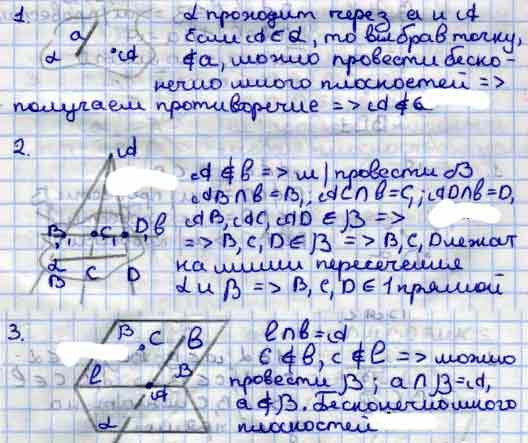 1.
α проходит через a и A
Если A∈α, то выбрав точку,
∉a, можно провести беско-
нечно много плоскостей =>
получаем противоречие => A∉a
a
α
A
2.
A∉b => м/провести β
AB∩b=B₁, AC∩b=C₁; AD∩b=D₁
AB, AC, AD ∈ β =>
=> B, C, D∈β => B, C, D лежат
на линии пересечения
α и β => B, C, D ∈ 1 прямой
A
B₁ C₁ D₁ b
α
B C D
3.
l∩b=A
C∉b, c∉l => можно
провести β; a∩β=A,
a∉β. Бесконечно много
плоскостей
B C b
l β
A
α